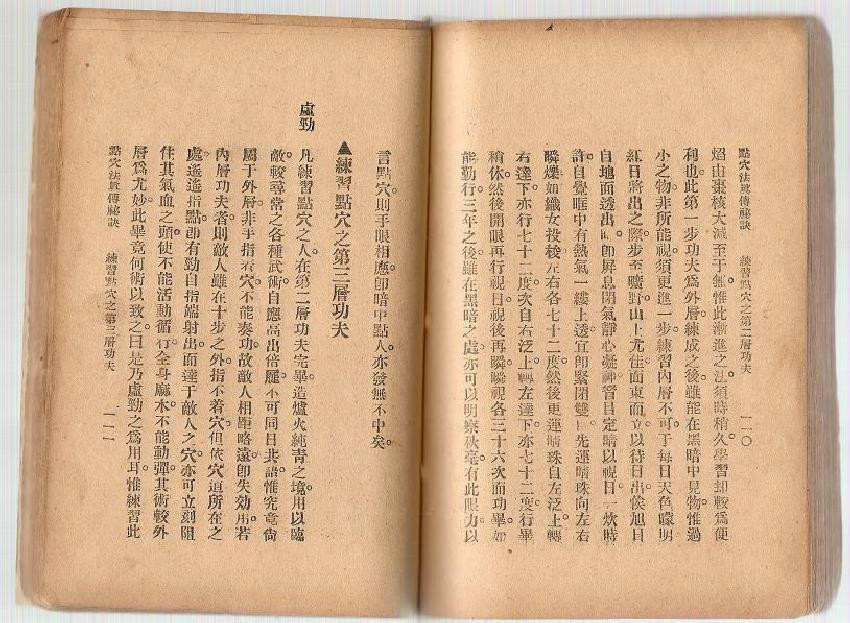 點穴法眞傳秘訣　練習點穴之第二層功夫　一一〇
焰由棗核大減至于無。惟此漸進之法。須時稍久。學習却較爲便
利也。此第一步功夫爲外層。練成之後。雖能在黑暗中見物。惟過
小之物。非所能視。須更進一步。練習內層不可。于每日天色矇明。
紅日將出之際。步至曠野山上尤佳。面東而立。以待日出。候旭日
自地面透出。卽屏息閉氣。靜心凝神。目定睛以視日。一炊時
許。自覺眶中有熱氣一縷上透。宜卽緊閉雙目。先運睛珠向左右
瞬爍。如織女投梭。左右各七十二度。然後更運睛珠。自左泛上。轉
右達下。亦行七十二度。次自右泛上。轉左達下。亦七十二度。行畢
稍休。然後開眼再行視日。視後再瞬。瞬視各三十六次而功畢。如
能勤行三年之後。雖在黑暗之處。亦可以明察秋毫。有此眼力。以
言點穴。則手眼相應。卽暗中點人。亦發無不中矣。
▲練習點穴之第三層功夫
虛勁
凡練習點穴之人。在第二層功夫完畢。造爐火純靑之境。用以臨
敵。較尋常之各種武術。自應高出倍蓰。不可同日共語。惟究竟尙
屬于外層。非手指着穴。不能奏功。故敵人相距略遠。卽失効用。若
內層功夫者。則敵人雖在十步之外。指不着穴。但依穴道所在之
處。遙遙指點。卽有勁自指端射出。而達于敵人之穴。亦可立刻阻
住其氣血之頭。使不能活動循行。全身麻木。不能動彈。其術較外
層爲尤妙。此畢竟何術以致之。曰是乃虛勁之爲用耳。惟練習此
點穴法眞傳秘訣　練習點穴之第三層功夫　一一一